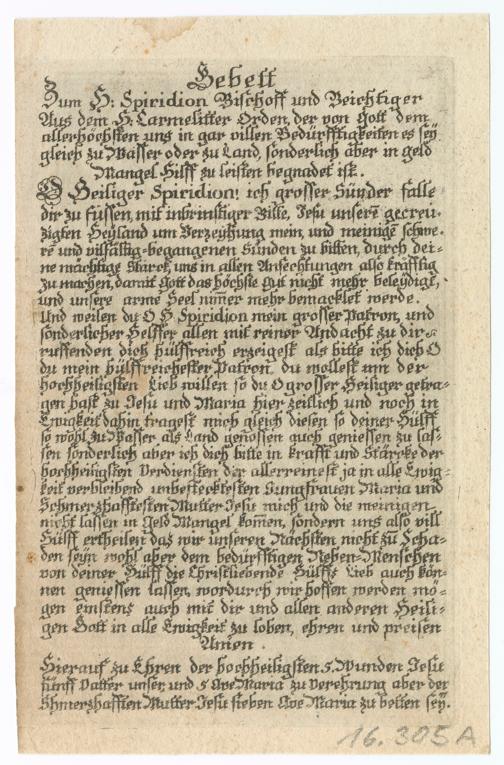 Gebett
Zum H: Spiridion Bischoff und Beichtiger
Aus dem H: Carmelitter Orden, der von Gott dem
allerhöchsten uns in gar villen Bedürfftigkeiten es seÿ
gleich zu Wasser oder zu Land, sonderlich aber in geld
Mangel Hilff zu leisten begnadet ist.
O Heiliger Spiridion! ich grosser Sünder falle
dir zu füssen, mit inbrinstiger Bitte, Jesu unserē gecreu-
zigten Heyland um Verzeyhung mein, und meinige schwe-
re und vilfältig-begangenen Sünden zu bitten, durch dei-
ne mächtige Stärck, uns in allen Anfechtungen also kräfftig
zu machen, damit Gott das höchste Gut nicht mehr beleÿdigt,
und unsere arme Seel nim̄er mehr bemacklet werde.
Und weilen du O H Spiridion mein grosser Patron, und
sonderlicher Helffer allen mit reiner Andacht zu dir
ruffenden dich hülffreich erzeigest als bitte ich dich O
du mein hülffreichester Patron, du wollest um der
hochheiligsten Lieb willen so du O grosser Heiliger getra-
gen hast zu Jesu und Maria hier zeitlich und noch in
Ewigkeit dahin tragest mich gleich diesen so deiner Hülff
so wohl zu Wasser als Land genossen auch geniessen zu las-
sen sonderlich aber ich dich bitte in krafft und Stärcke der
hochheiligsten Verdiensten der allerreinest ja in alle Ewig-
keit verbleibend unbeflecktesten Jungfrauen Maria und
Schmerzhafftesten Mutter Jesu mich und die meinigen
nicht lassen in Geld Mangel kom̄en, sondern uns also vill
Hülff ertheilen das wir unseren Nächsten nicht zu Scha-
den seÿn wohl aber dem bedürfftigen Neben-Menschen
von deiner Hülff die Christliebende Hülffs Lieb auch kön-
nen geniessen lassen, wordurch wir hoffen werden mö-
gen einstens auch mit dir und allen anderen Heili-
gen Gott in alle Ewigkeit zu loben, ehren und preisen
Amen.
Hierauf zu Ehren der hochheiligsten 5. Wunden Jesu
fünff Vatter unser, und 5 Ave Maria zu Verehrung aber der
Schmerzhafften Mutter Jesu sieben Ave Maria zu betten seÿ.
16.305A